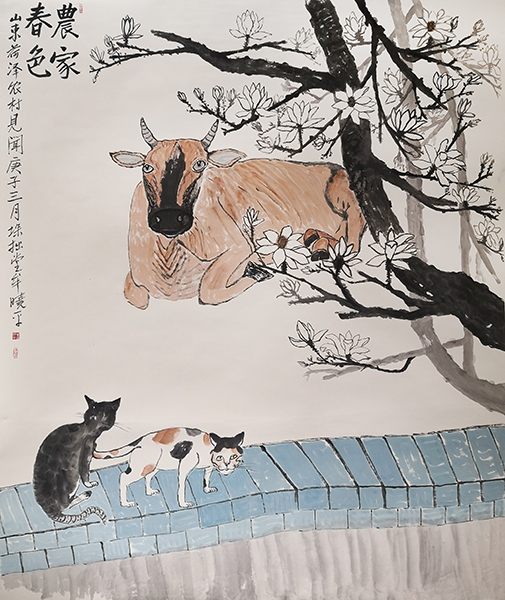 農家
春色
山東菏泽农村見聞庚子三月琛拙堂牟曉平